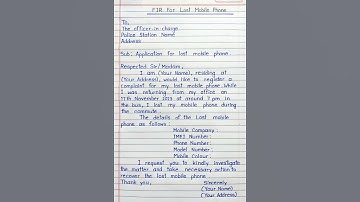 FIR For Lost Mobile Phone
To,
The officer-in-charge
Police Station Name
Address
Sub: Application for lost mobile phone.
Respected Sir/Madam,
I am (Your Name), residing at
(Your Address), would like to register a
complaint for my lost mobile phone. While
I was returning from my office on
17th November 2023 at around 7 pm in
the bus, I lost my mobile phone during
the commute.
The details of the Lost mobile
phone as follows:
Mobile Company:
IMEI Number:
Phone Number:
Model Number:
Mobile Colour:
I request you to kindly investigate
the matter and take necessary action to
recover the lost mobile phone
Thank you,
Sincerely
(Your Name)
(Your Address)